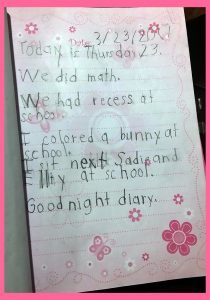 Date: 3/23/2017
Today is Thursday 23.
We did math.
We had recess at
school.
I colored a bunny at
school.
I sit next Sadie and
at school.
Good night diary.